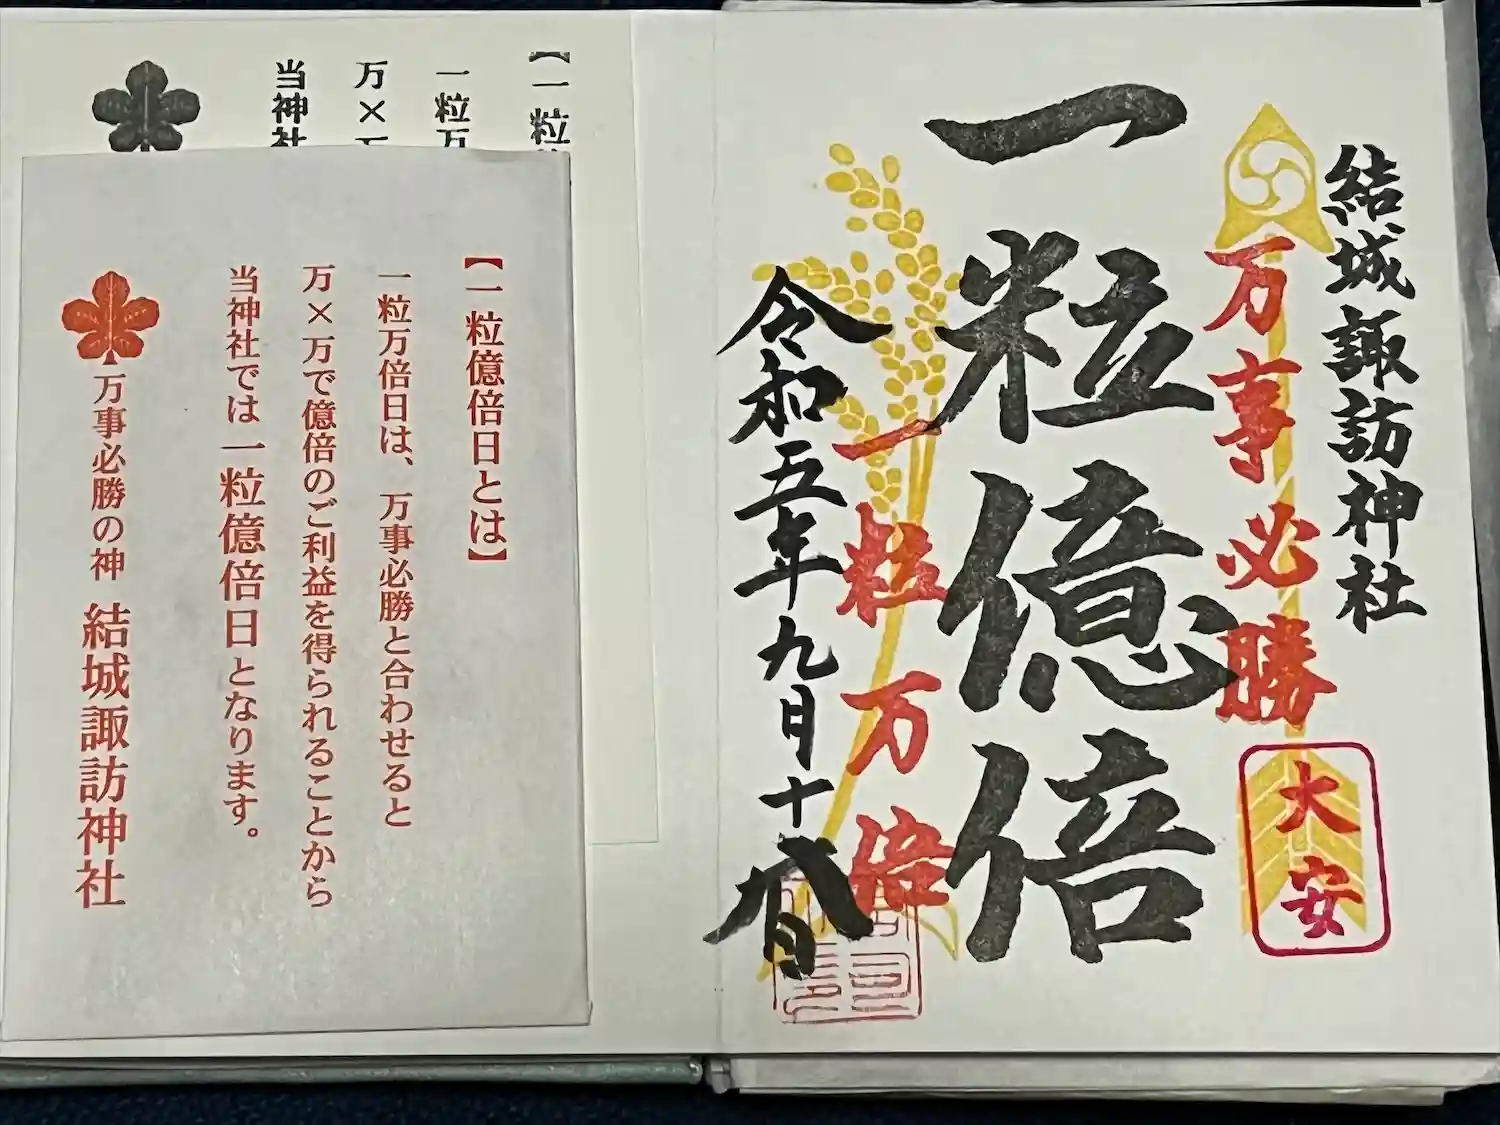 結城諏訪神社
万事必勝
大安
一粒億倍
一粒万倍
令和五年九月十八日
【一粒
一粒万
万×
当神社
【一粒億倍日とは】
一粒万倍日は、万事必勝と合わせると
万×万で億倍のご利益を得られることから
当神社では一粒億倍日となります。
万事必勝の神 結城諏訪神社